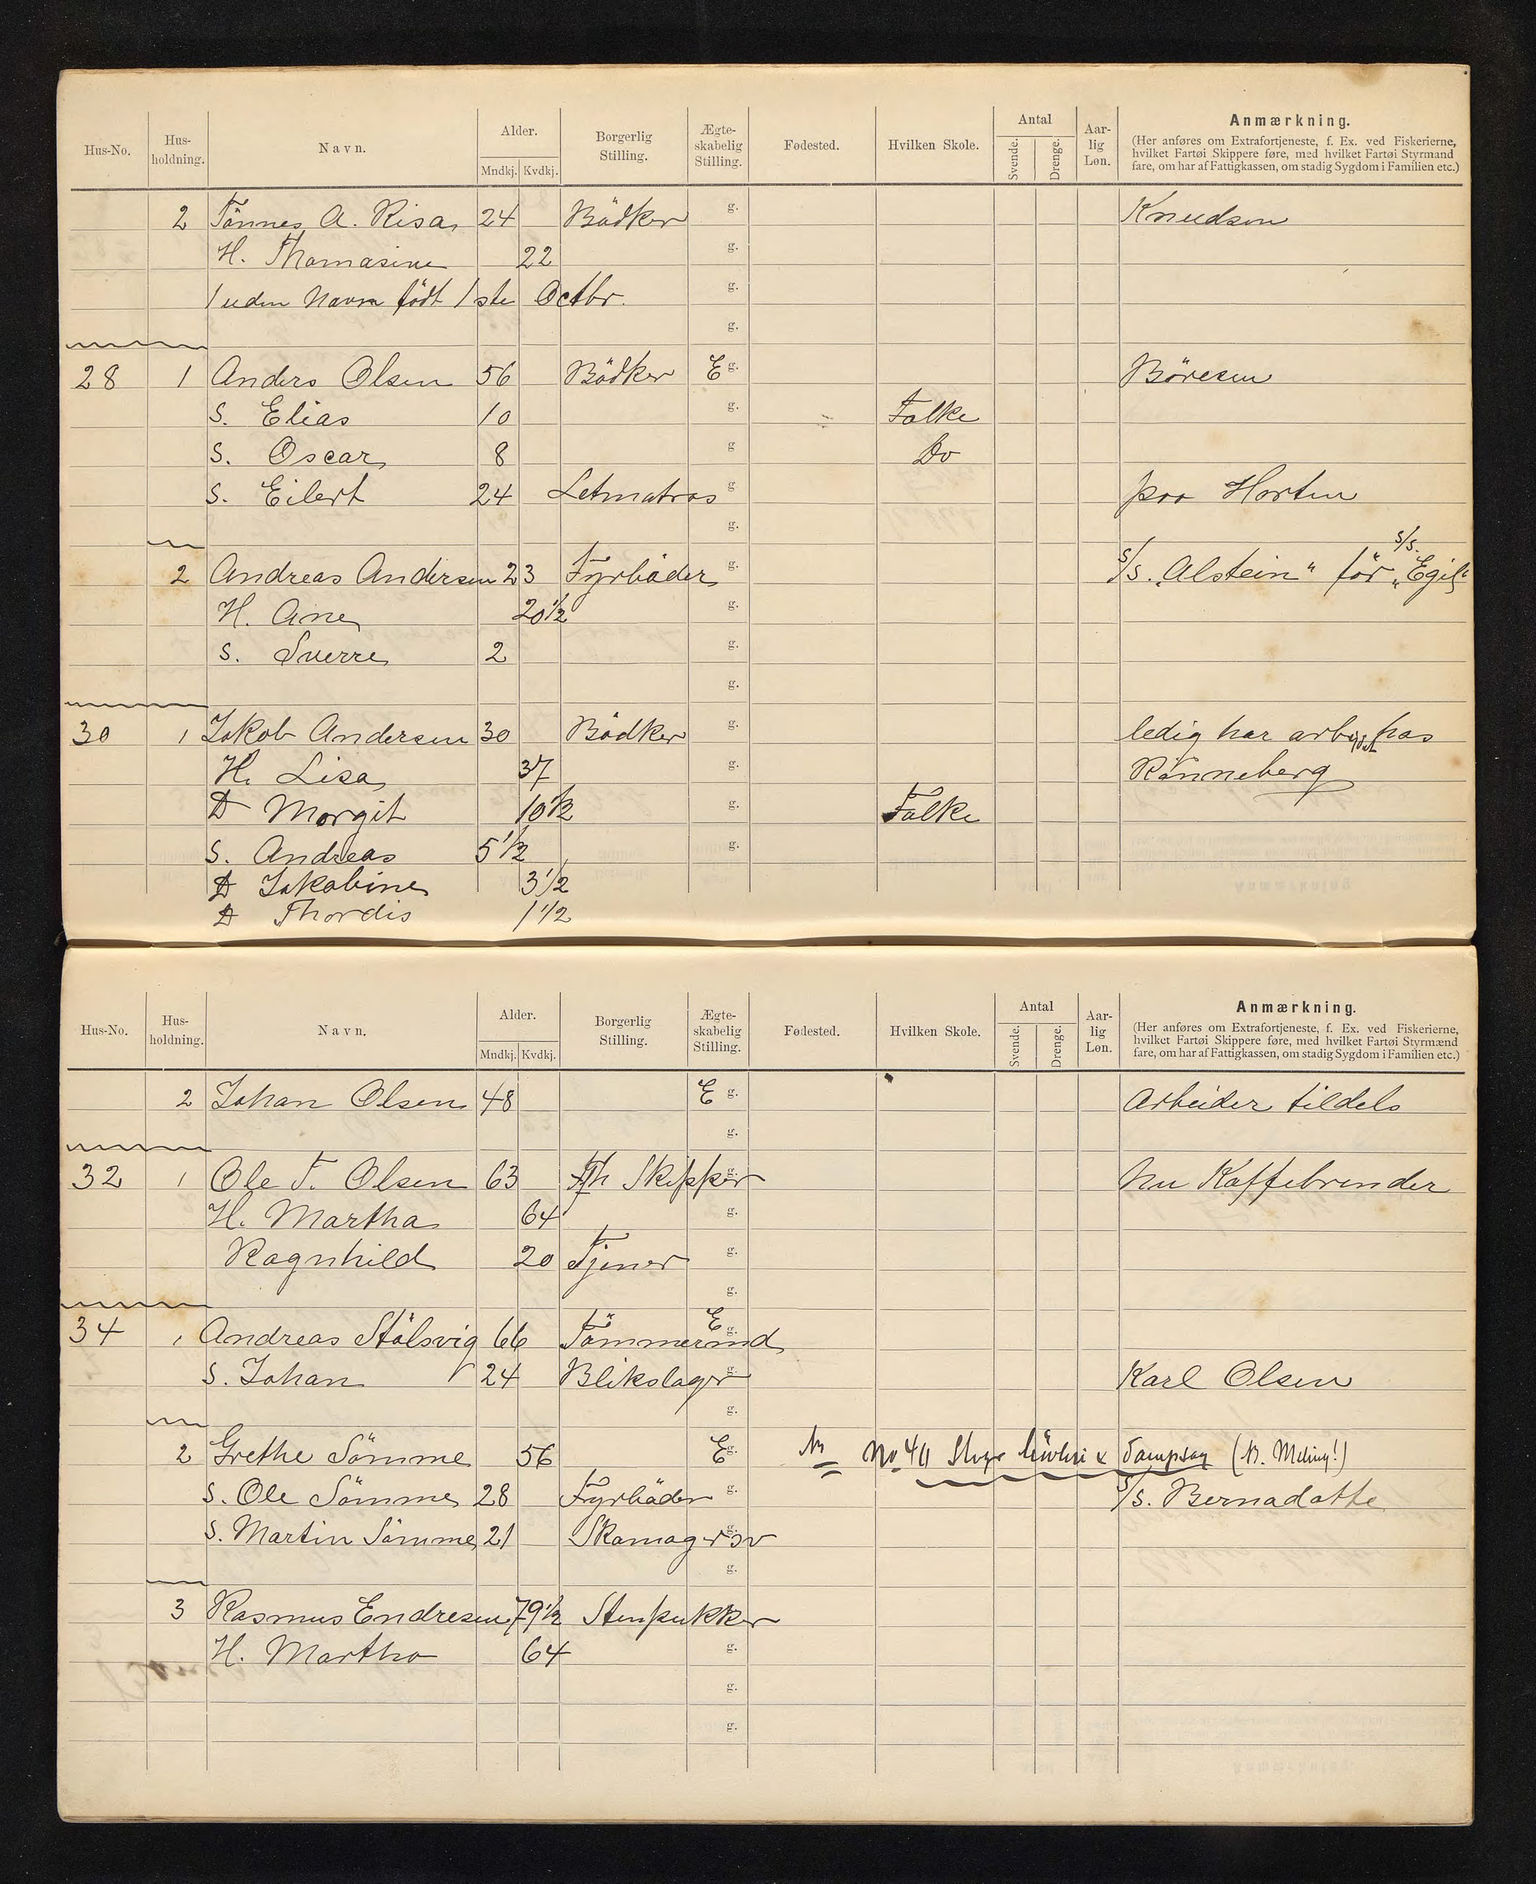 Hus-No. Hus-holdning. Navn. Alder. Mndkj. Kvdkj. Borgerlig Stilling. Ægte-skabelig Stilling. Fødested. Hvilken Skole. Antal Svende. Drenge. Aar-lig Løn. Anmærkning.
(Her anføres om Extrafortjeneste, f. Ex. ved Fiskerierne,
hvilket Fartøi Skippere føre, med hvilket Fartøi Styrmænd
fare, om har af Fattigkassen, om stadig Sygdom i Familien etc.)
2 Tönnes A. Risa 24 Bödker g. Knudson
H. Thomasine 22 g.
1 uden Navn födt 1ste Octbr. g.
g.
28 1 Anders Olsen 56 Bödker E g. Böresen
S. Elias 10 g. Falke
S. Oscar 8 g Do
S. Eilert 24 Letmatros g paa Horten
g.
2 Andreas Andersen 23 Fyrböder g. S/S. "Alstein" för S/S. "Egil"
H. Ane 20 1/2 g.
S. Sverre 2 g.
g.
30 1 Jakob Andersen 30 Bödker g. ledig har arbeidet hos
H. Lisa 37 g. Rönneberg
D Margit 10 1/2 g. Falke
S. Andreas 5 1/2 g.
D Jakobine 3 1/2
D Thordis 1 1/2
Hus-No. Hus-holdning. Navn. Alder. Mndkj. Kvdkj. Borgerlig Stilling. Ægte-skabelig Stilling. Fødested. Hvilken Skole. Antal Svende. Drenge. Aar-lig Løn. Anmærkning.
(Her anføres om Extrafortjeneste, f. Ex. ved Fiskerierne,
hvilket Fartøi Skippere føre, med hvilket Fartøi Styrmænd
fare, om har af Fattigkassen, om stadig Sygdom i Familien etc.)
2 Johan Olsen 48 E g. Arbeider tildels
g.
32 1 Ole T. Olsen 63 Skipper g. Nu Kaffebrender
H. Martha 64 g.
Ragnhild 20 Tjener g.
g.
34 1 Andreas Stölsvig 66 Tömmermd E g.
S. Johan 24 Blikslager g. Karl Olsen
g.
2 Grethe Sömme 56 E g. No 40 Dampsag
S. Ole Sömme 28 Fyrböder g. S/S. Bernadotte
S. Martin Sömme 21 Skomagersv g.
g.
3 Rasmus Endresen 79 1/2 Stenpukker
H. Martha 64 g.
g.
g.